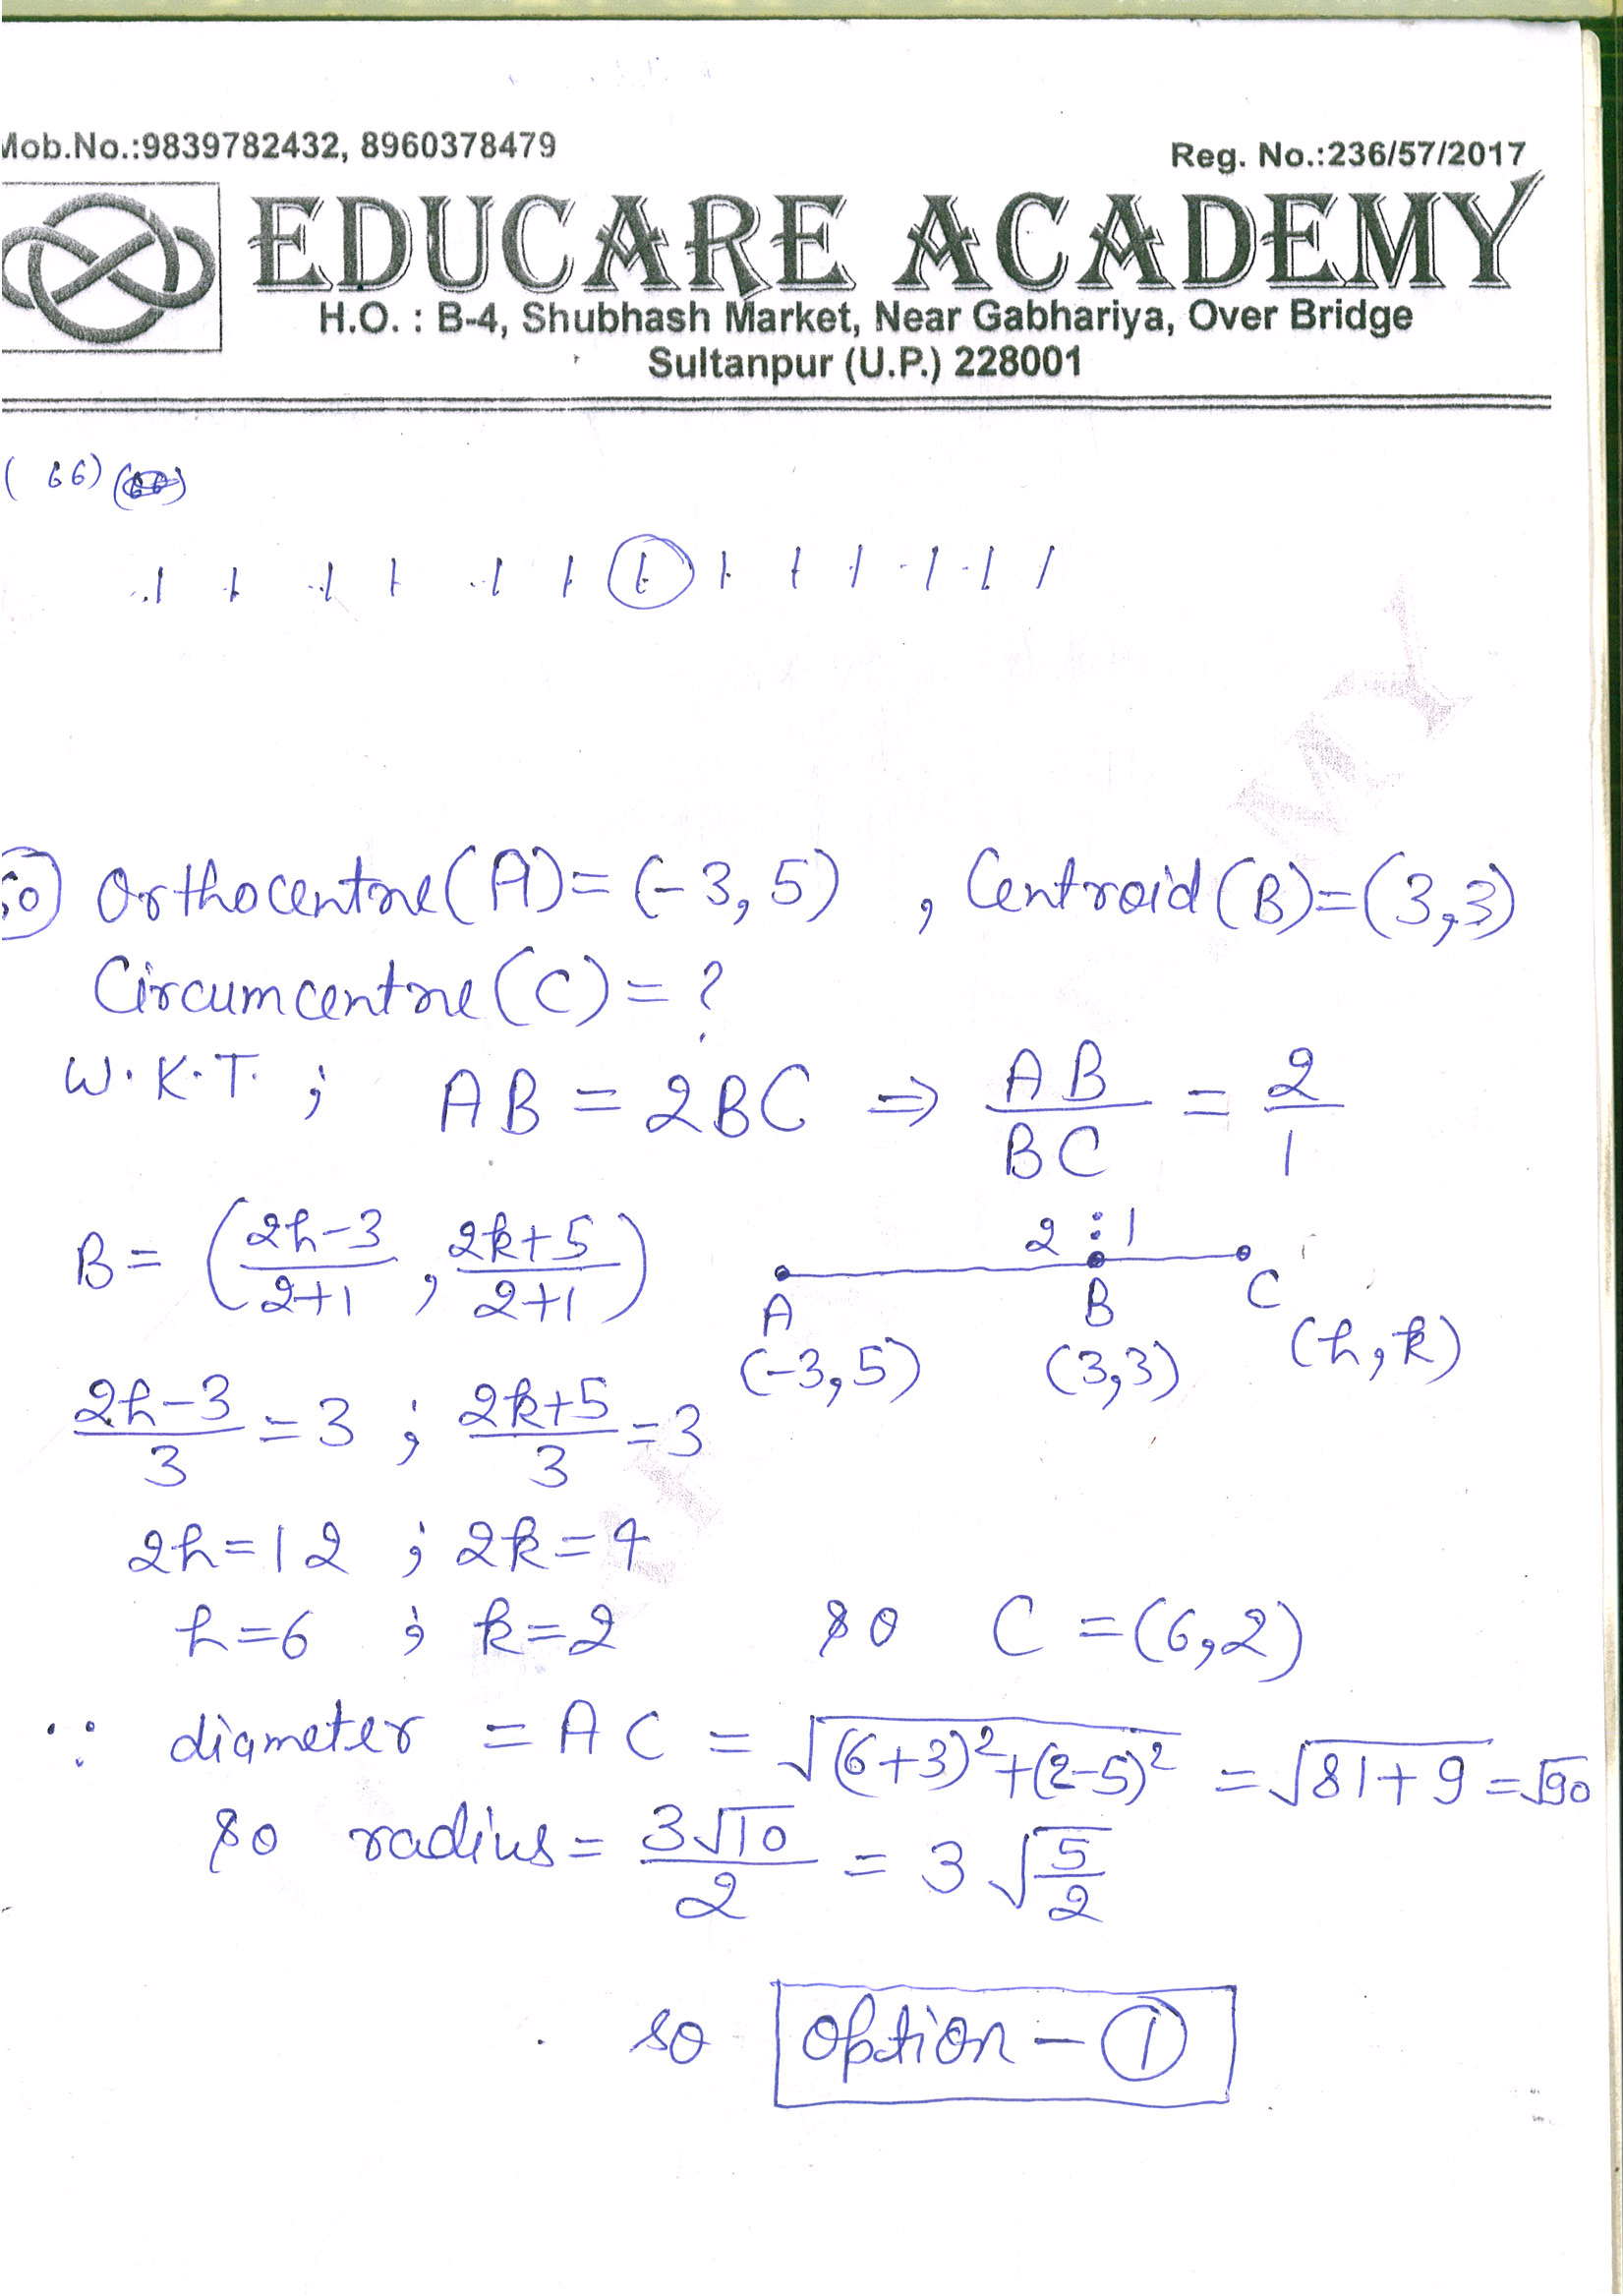 Mob.No.:9839782432, 8960378479
Reg. No.:236/57/2017
EDUCARE ACADEMY
H.O. : B-4, Shubhash Market, Near Gabhariya, Over Bridge
Sultanpur (U.P.) 228001
(66)
Orthocentre(A)=(-3,5) , Centroid(B)=(3,3)
Circumcentre(C)=?
W.K.T. ; AB=2BC ⇒ AB/BC = 2/1
B= ((2h-3)/(2+1), (2k+5)/(2+1))
2 : 1
A B C
(-3,5) (3,3) (h,k)
(2h-3)/3 = 3 ; (2k+5)/3 = 3
2h=12 ; 2k=4
h=6 ; k=2 so C=(6,2)
∵ diameter = AC = √((6+3)²+(2-5)²) = √(81+9) = √90
so radius = 3√10/2 = 3√(5/2)
so Option-①